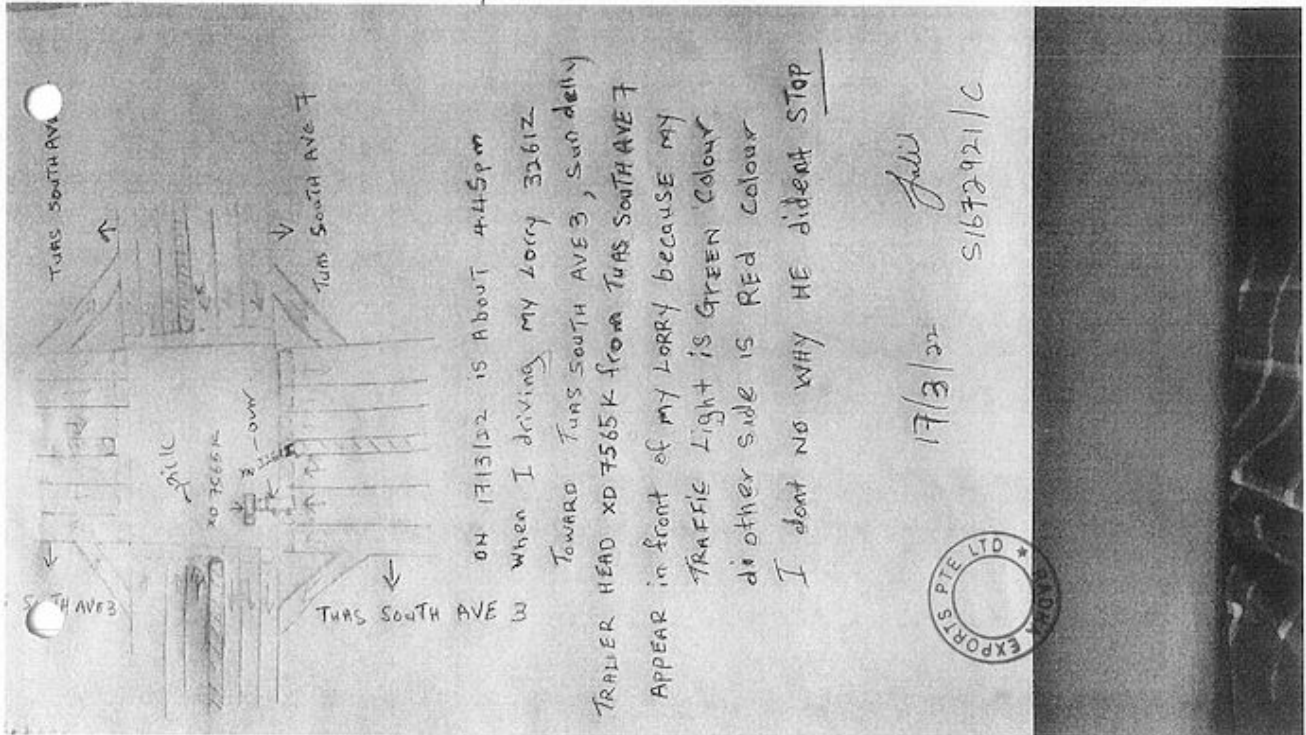 TUAS SOUTH AVE
TUAS SOUTH AVE 7
XD 7565K
TH AVE3
TUAS SOUTH AVE 3
ON 17/3/22 is About 4.45pm
When I driving my Lorry 3261Z
Toward Tuas South AVE3, sundelly
TRALIER HEAD XD7565K from TUAS SOUTH AVE 7
APPEAR in front of my LORRY because MY
TRAFFIC Light is GREEN Colour
di other side is RED colour
I dont NO WHY HE dident STOP
17/3/22
S1672921/C
PADMA EXPORTS PTE LTD